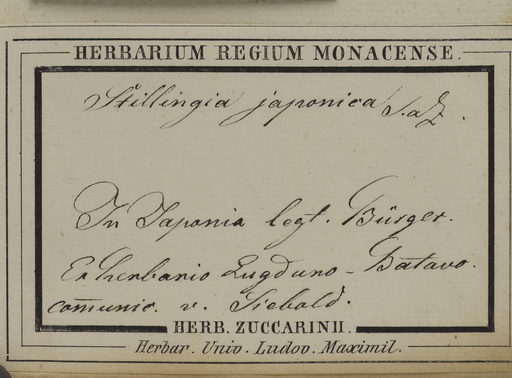 HERBARIUM REGIUM MONACENSE.
Stillingia japonica S. a Z.
In Japonia legt. Bürger.
Ex herbario Lugduno-Batavo.
com̄unic. v. Siebold.
HERB. ZUCCARINII.
Herbar. Univ. Ludov. Maximil.